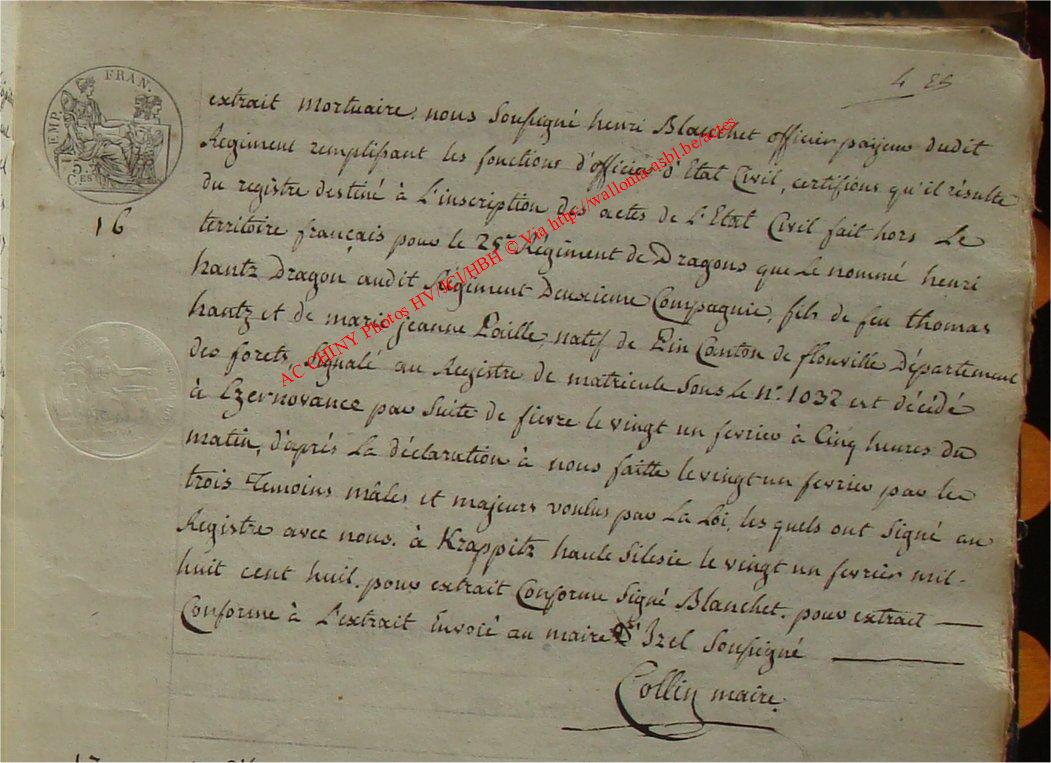 4 E5
EMP. FRAN.
75 CES
16
extrait mortuaire. nous Soussigné henri Blanchet officier payeur dudit
Regiment remplissant les fonctions d'officier d'Etat Civil, certifions qu'il résulte
du registre destiné à L'inscription des actes de L'Etat Civil fait hors Le
territoire français pour le 25e Régiment de Dragons que Le nommé henri
hantz Dragon audit Régiment Deuxieme Compagnie, fils de feu thomas
hantz et de marie jeanne Poille, natif de Pin Canton de flouville Département
des forets, signalé au Registre de matricule sous Le n°. 1032 est décédé
à Czernovance par suite de fievre le vingt un fevrier à Cinq heures du
matin, d'après La déclaration à nous faitte le vingt un fevrier par les
trois Temoins mâles et majeurs voulus par La Loi, les quels ont signé au
Registre avec nous. à Krappitz haute Silesie le vingt un fevrier mil-
huit cent huit. pour extrait Conforme Signé Blanchet. pour extrait
Conforme à L'extrait Envoié au maire d'Izel Soussigné
Collin maire.
17
AC CHINY Photos HV/ACJ/HBH © Via http://wallonia-asbl.be/actes